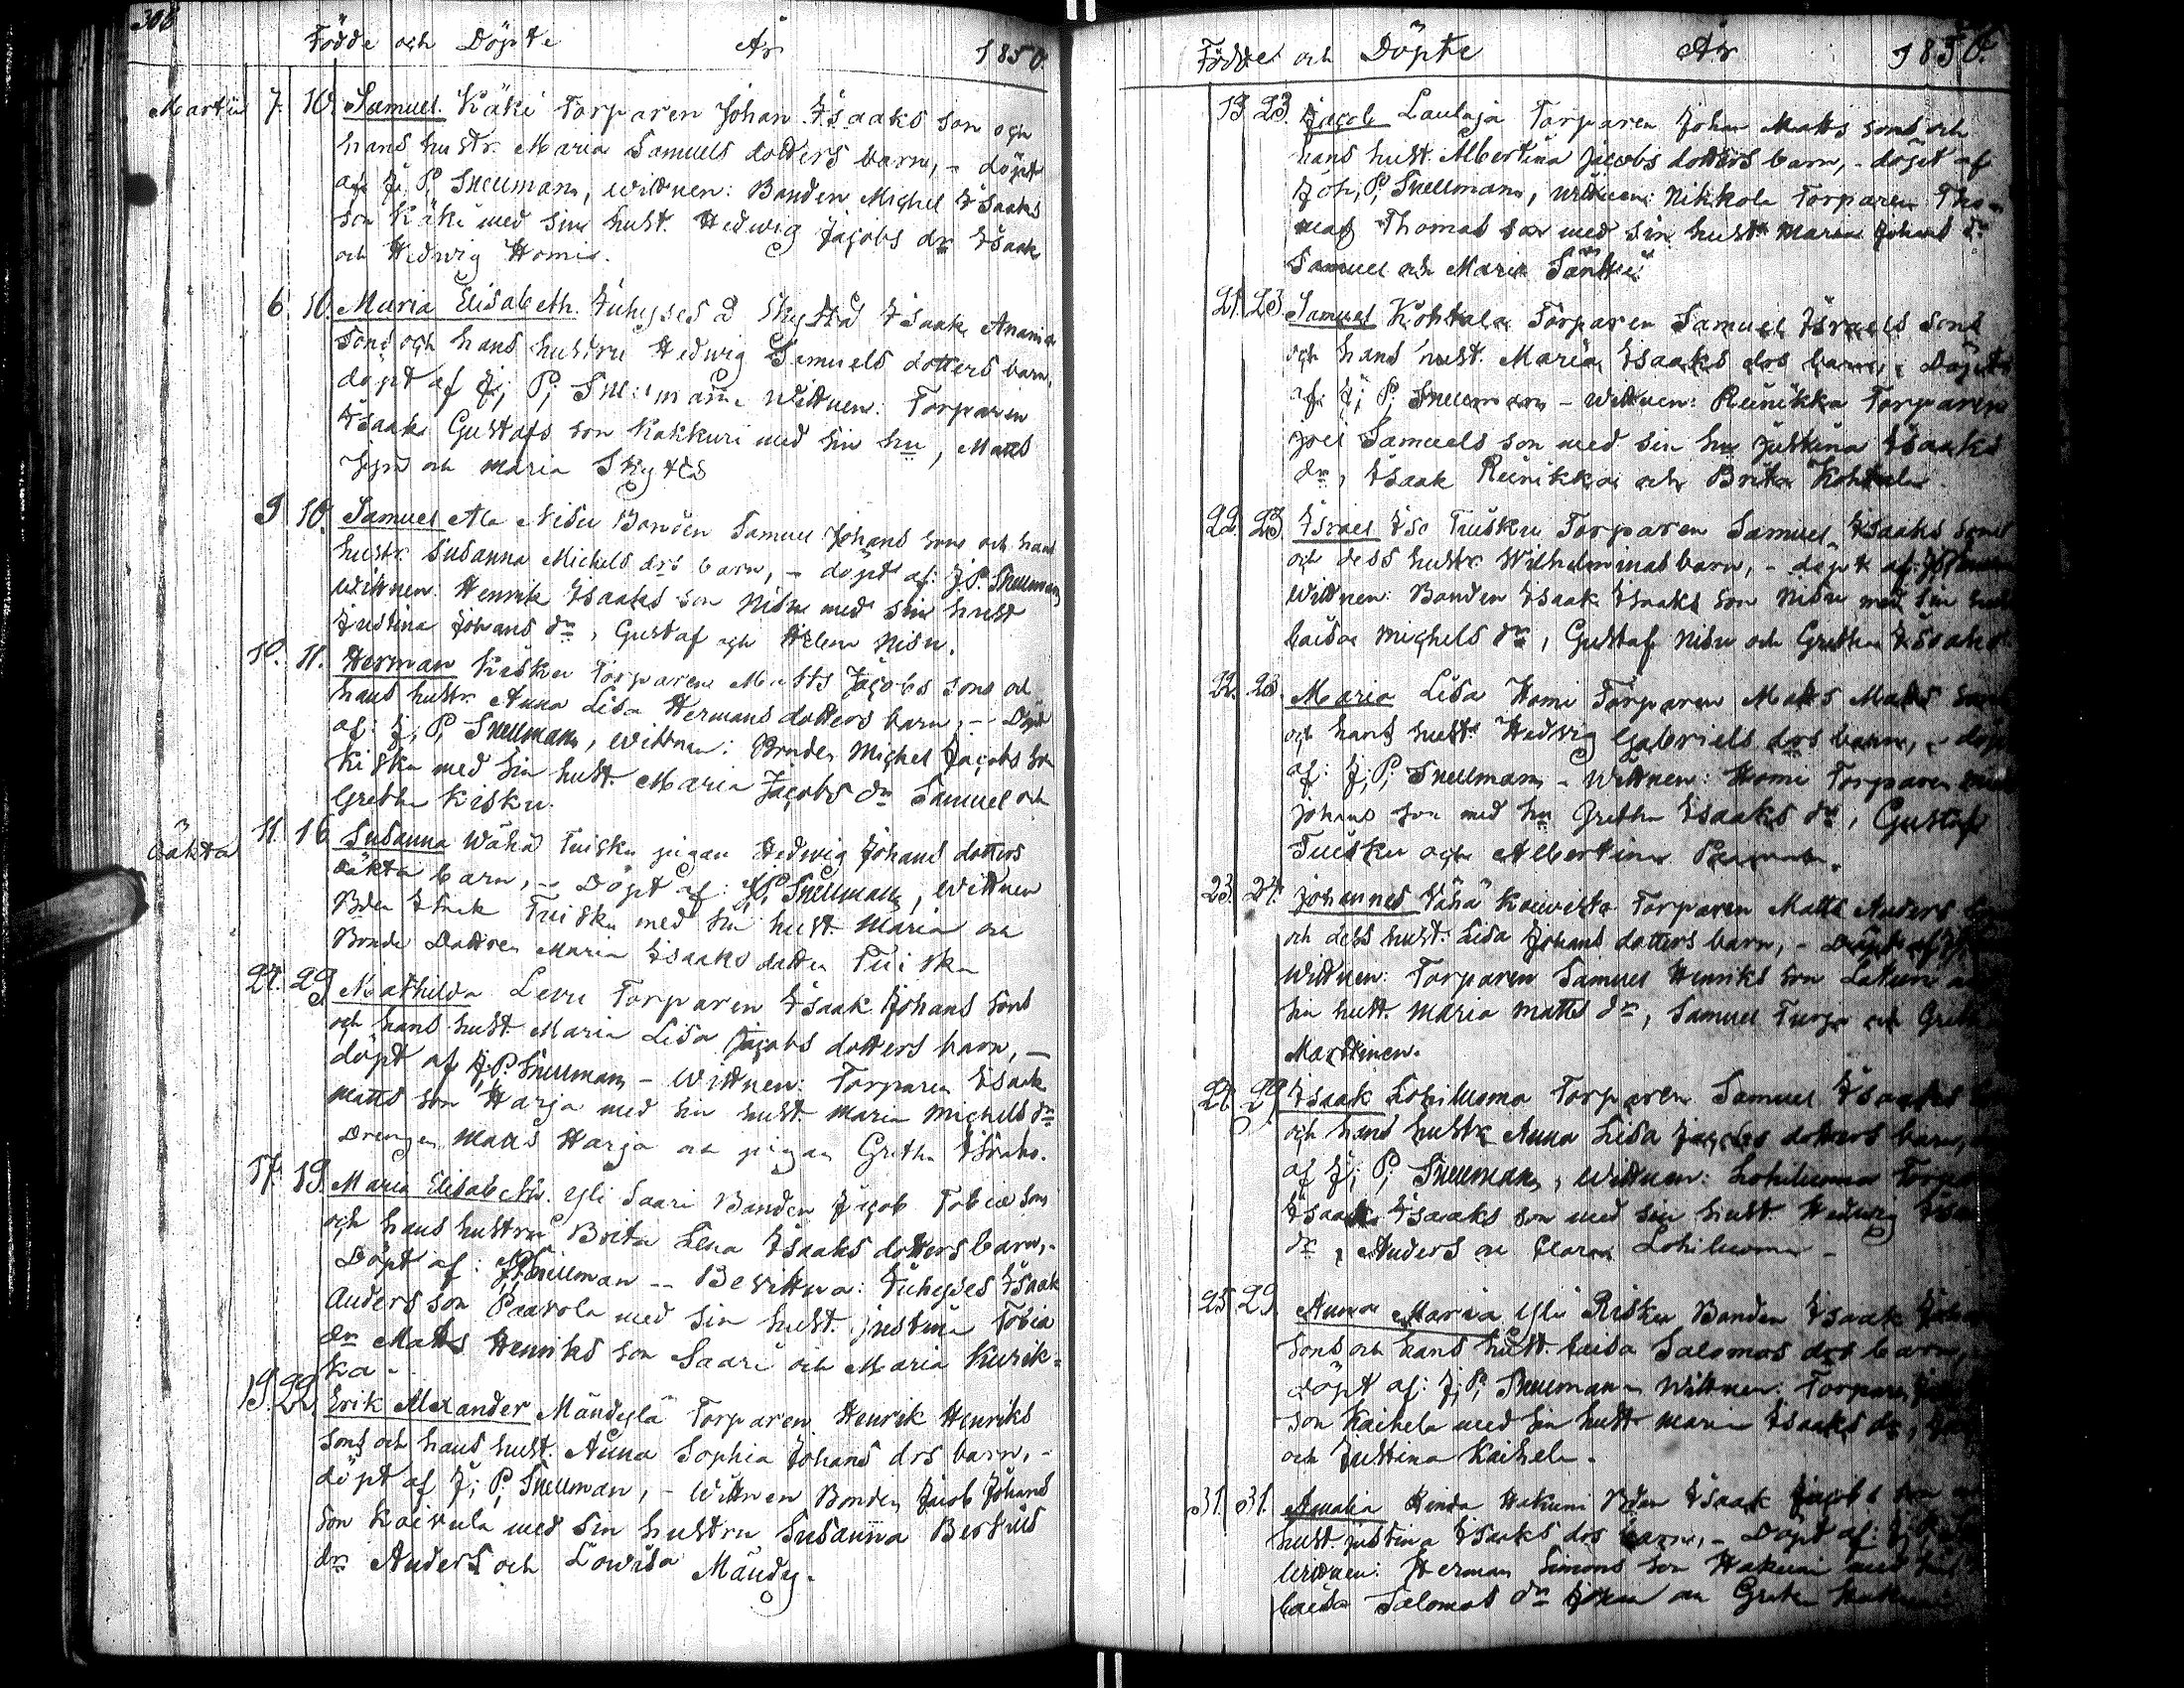 308
Födde och Döpte År 1850.
Martii 7. 10. Samuel Käki Torparen Johan Isaaks son och
hans hustr. Maria Samuels dotters barn, - döpt
af J. P. Snellman, wittnen: Bonden Michel Isaaks
son Käki med sin hust. Hedwig Jacobs dr Isaak
och Hedwig Homi.
6. 10. Maria Elisabeth Skyttä Isaak Anania
sons och hans hustru Hedwig Samuels dotters barn,
döpt af J. P. Snellman wittnen: Torparen
Isaak Gustafs son Kokkuri med sin hu, Matts
och Maria Skyttä
9 10. Samuel Ala Nisu Bonden Samuel Johans sons och hans
hustr. Susanna Michels drs barn, - döpt af: J. P. Snellman
wittnen: Henrik Isaaks son Nisu med sin hust
Justina Johans dr, Gustaf och Helena Nisu.
10. 11. Herman Kisku Torparen Matts Jacobs sons och
hans hustr. Anna Lisa Hermans dotters barn, - Döpt
af: J. P. Snellman, wittnen: Bonden Michel Jacobs son
Kisku med sin hust. Maria Jacobs dr Samuel och
Gretha Kisku.
Oäkta 11. 16 Susanna Wähä Tuisku pigan Hedwig Johans dotters
oäkta barn, - Döpt af: J. P. Snellman, wittnen
Bden Isaak Tuisku med sin hust. Maria och
Bonde Dottren Maria Isaaks dotter Tuisku
27. 29 Mathilda Levu Torparen Isaak Johans sons
och hans hust. Maria Lisa Jacobs dotters barn, -
döpt af J. P. Snellman - Wittnen: Torparen Isaak
Matts son Harja med sin hust. Maria Michels dr
Drengen Matts Harja och pigan Gretha Isaaks.
17. 19. Maria Elisabeth Yli Saari Bonden Jacob Tobias sons
och hans hustru Brita Lena Isaaks dotters barn, -
Döpt af: J. P. Snellman -- Bevittna: Isaak
Anders son Paavola med sin hust. Justina Tobia
dr Matts Henriks son Saari och Maria Kurik=
ka -
19. 22. Erik Alexander Mändylä Torparen Henrik Henriks
sons och hans hust. Anna Sophia Johans drs barn, -
döpt af J. P. Snellman, - wittnen Bonden Jacob Johans
son Koivula med sin hustru Susanna
dr Anders och Lowisa Mändy.
Födde och Döpte År 1850.
19 23. Jacob Laulaja Torparen Johan Matts sons och
hans hust. Albertina Jacobs dotters barn, - döpt af
Joh. P. Snellman, wittnen: Nikkola Torparen Tho=
mas Thomas son med sin hust. Maria Johans dr
Samuel och Maria Säntti
21. 23. Samuel Kohtala Torparen Samuel Israels sons
och hans hust. Maria Isaaks drs barn, Döpt
af J. P. Snellman - wittnen: Reinikka Torparen
Joel Samuels son med sin hu Justina Isaaks
dr, Isaak Reinikka och Brita Kohtala.
22. 23. Israel Iso Tuisku Torparen Samuel Isaaks sons
och dess hustr. Wilhelminas barn, - döpt af:
wittnen: Bonden Isaak Isaaks son Nisu med sin
Caisa Michels dr, Gustaf Nisu och Gretha Isaaks
22. 23. Maria Lisa Homi Torparen Matts Matts
och hans hustr. Hedwig Gabriels drs barn, - döpt
af: J. P. Snellman - Wittnen: Homi Torparen
Johans son med hu Gretha Isaaks dr, Gustaf
Tuisku och Albertina
23. 24. Johannes Vähä Koivisto Torparen Matts Anders
och dess hust. Lisa Johans dotters barn, - Döpt af
wittnen: Torparen Samuel Henriks son
sin hust. Maria Matts dr, Samuel och
Marttinen.
27. 29. Isaak Lohiluoma Torparen Samuel Isaaks
och hans hustr. Anna Lisa Jacobs dotters barn,
af J. P. Snellman, wittnen: Lohiluoma
Isaak Isaaks son med sin hust. Hedwig
dr, Anders och Clara Lohiluoma -
25. 29. Anna Maria Yli Risku Bonden Isaak
sons och hans hust. Caisa Salomos drs barn,
döpt af: J. P. Snellman wittnen: Torparen
son Kaihela med sin hust Maria Isaaks dr,
och Justina Kaihela.
31. 31. Amalia Hinda Hakuni Bden Isaak Jacobs
hust. Justina Isaaks drs barn, - Döpt af:
wittnen: Herman Simons son Hakuni med
Caisa Salomos dr och Greta